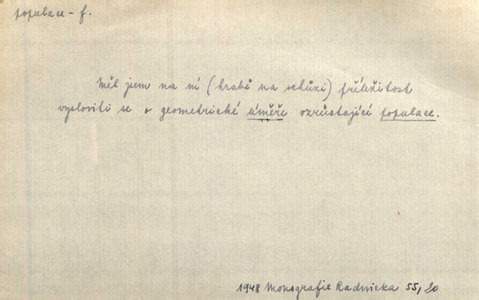 populace - f.
Měl jsem na ní (hrabě na schůzi) příležitost
vysloviti se v geometrické úměře vzrůstající populace.
1948 Monografie Radnicka 55, 20